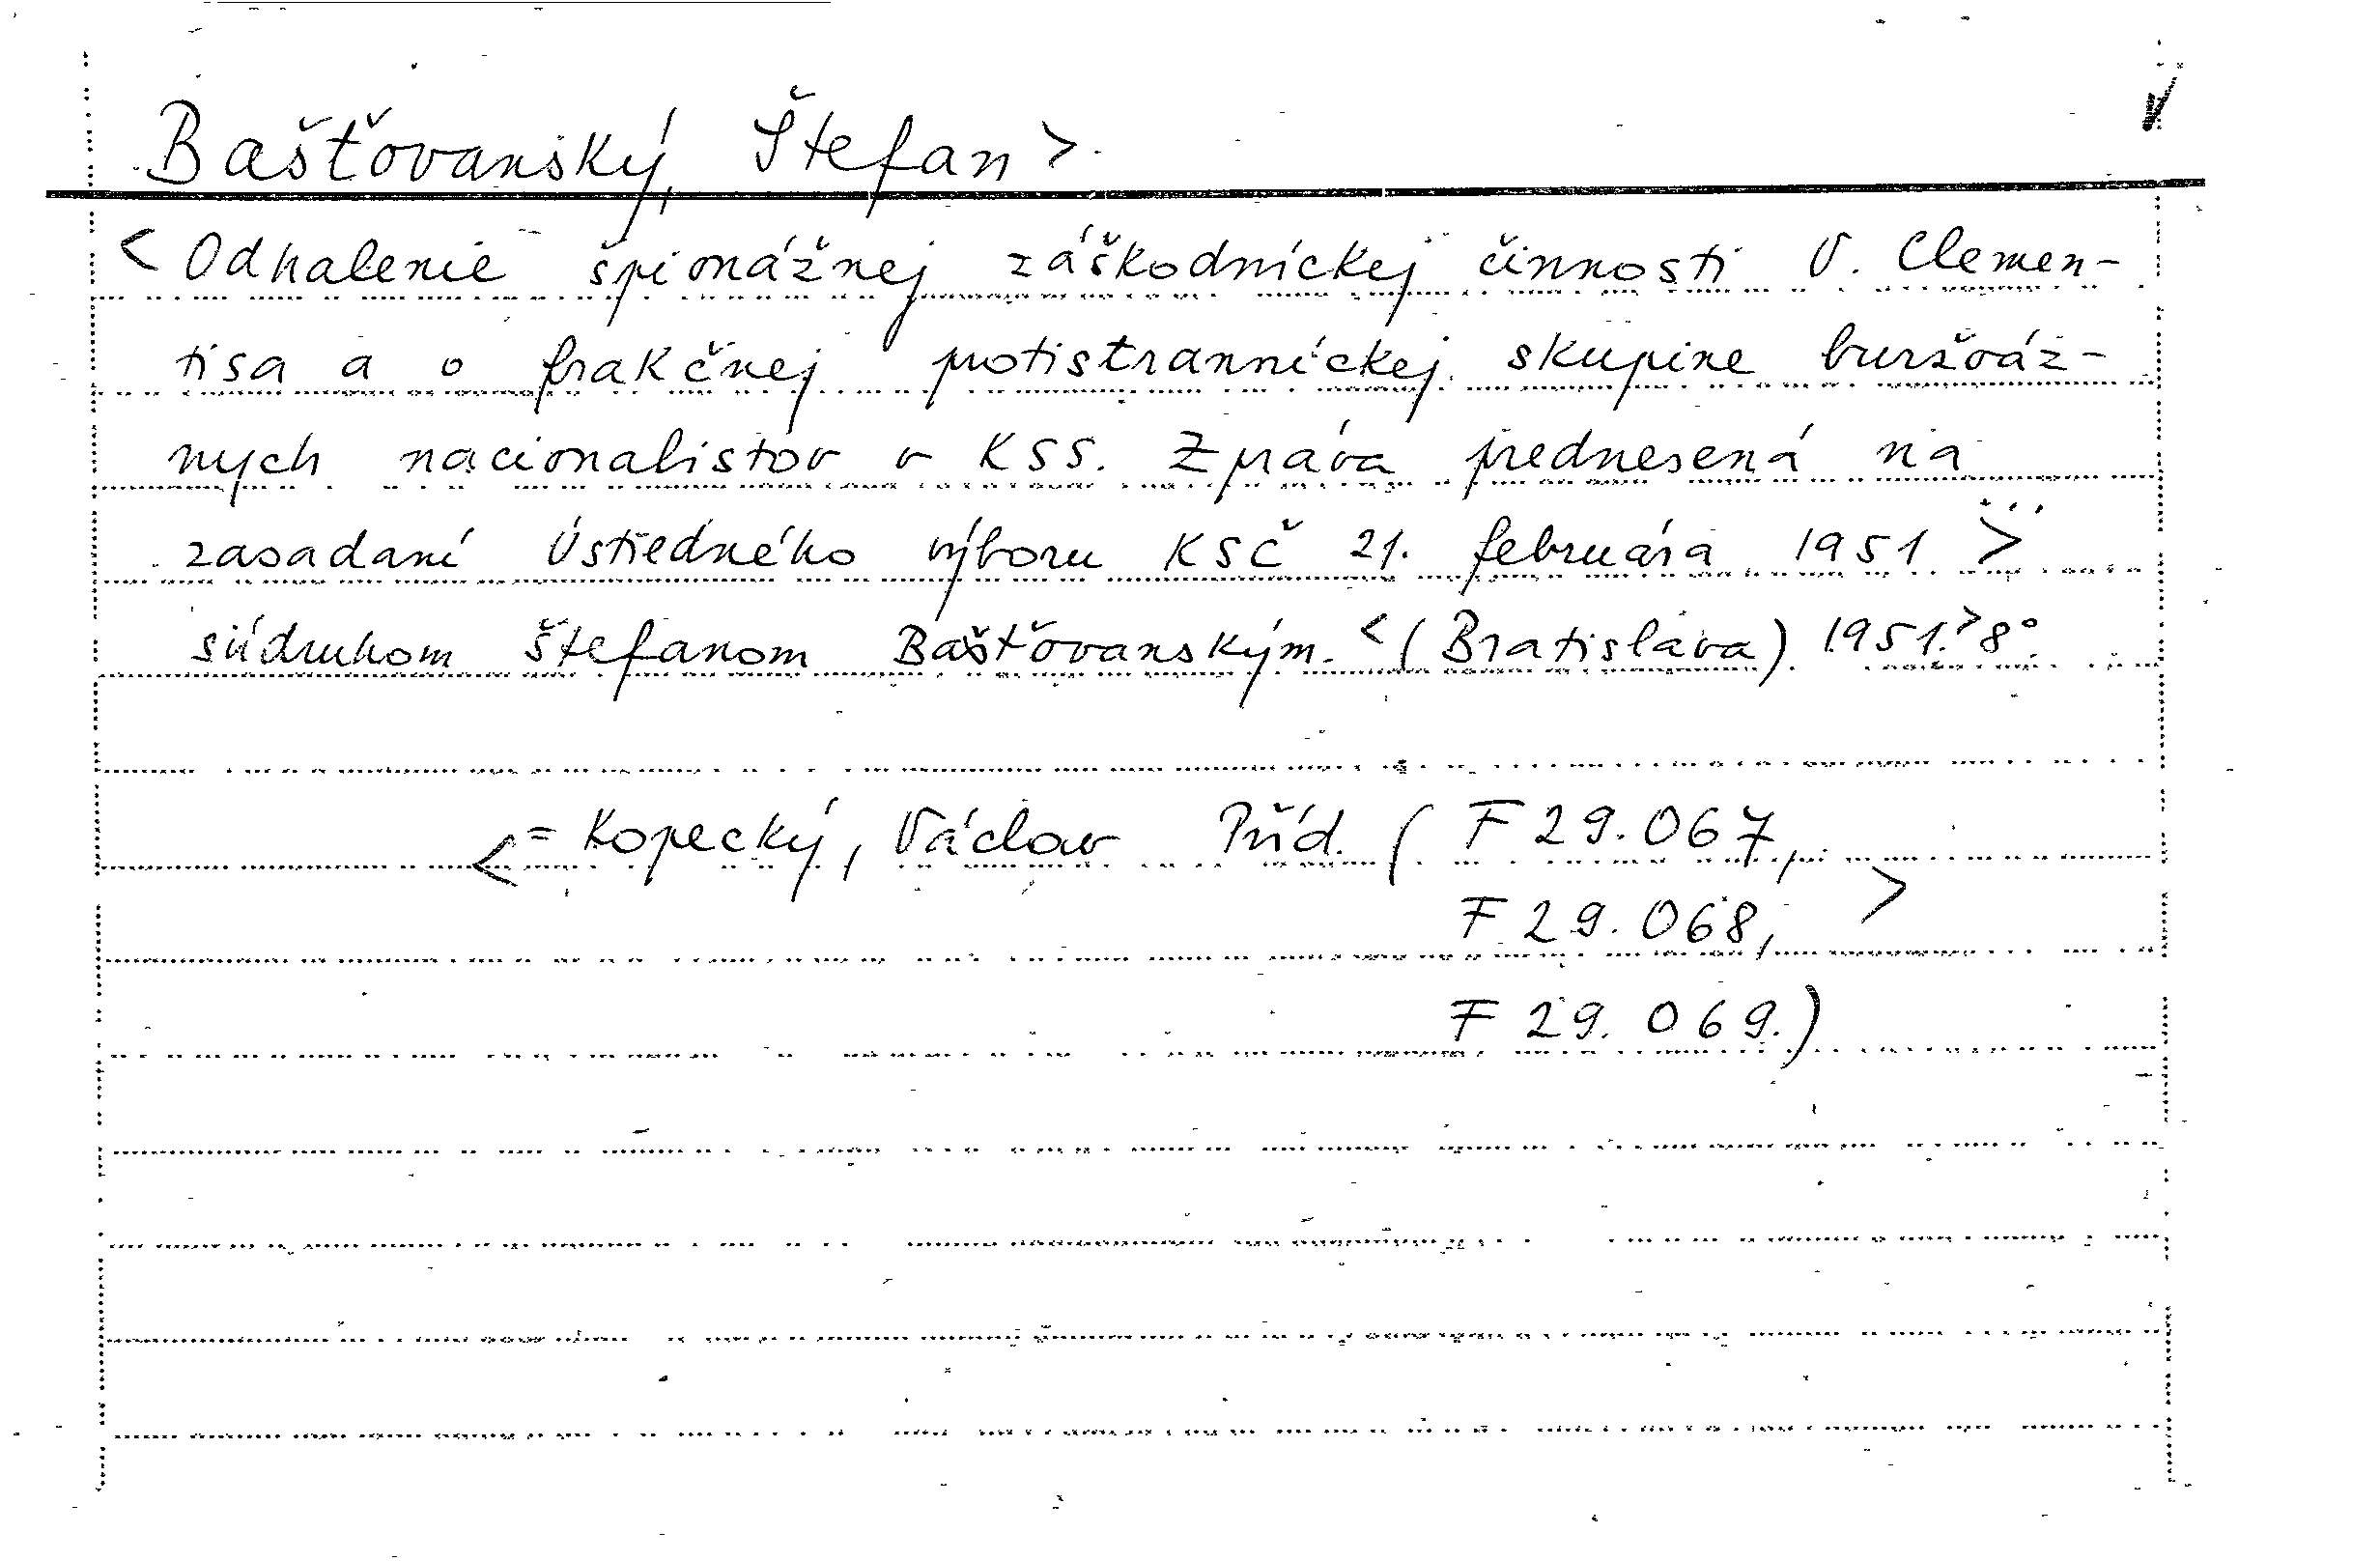 Bašťovanský, Štefan >.
< Odhalenie špionážnej záškodníckej činnosti V. Clemen-
tisa a o frakčnej protistranníckej skupine buržoáz-
nych nacionalistov v KSS. Zpráva prednesená na
zasadaní Ústředného výboru KSČ 21. februára 1951 ... >
súdruhom Štefanom Bašťovanským. < (Bratislava) 1951. > 8°.
< = Kopecký, Václav Příd. ( F 29.067,
F 29.068, >
F 29.069.)